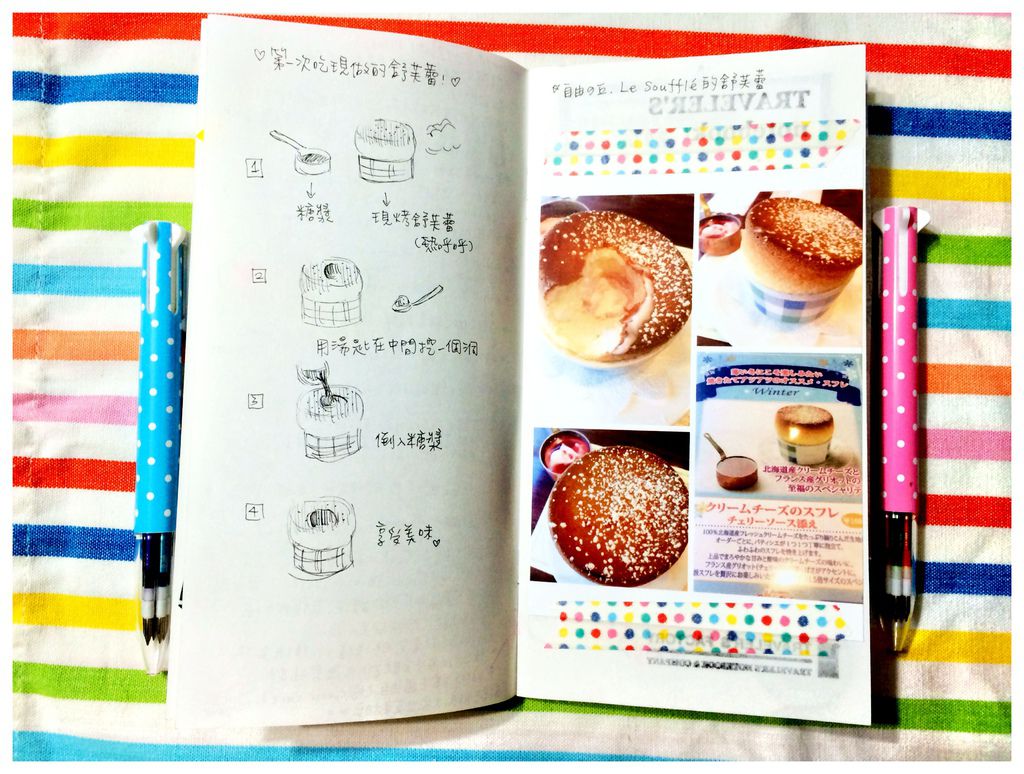 ♡第一次吃現做的舒芙蕾!♡
1
糖漿
現烤舒芙蕾
(熱呼呼)
2
用湯匙在中間挖一個洞
3
倒入糖漿
4
享受美味♡
自由の丘. Le Soufflé的舒芙蕾
TRAVELER'S
寒い冬にこそ楽しみたい
焼きたてアツアツのオススメ・スフレ
Winter
北海道産クリームチーズと
フランス産グリオットの
至福のスペシャリテ
クリームチーズのスフレ
チェリーソース添え
100%北海道産フレッシュクリームチーズをたっぷり
オーダーごとに、パティシエが1つ1つ丁寧に泡立て、
ふわふわのスフレを焼き上げます。
上品でまろやかな甘みと酸味のクリームチーズの味わいに、
フランス産グリオット(チェリ
がアクセントに。
TRAVELER'S FACTORY
TRAVELER'S NOTEBOOK & COMPANY